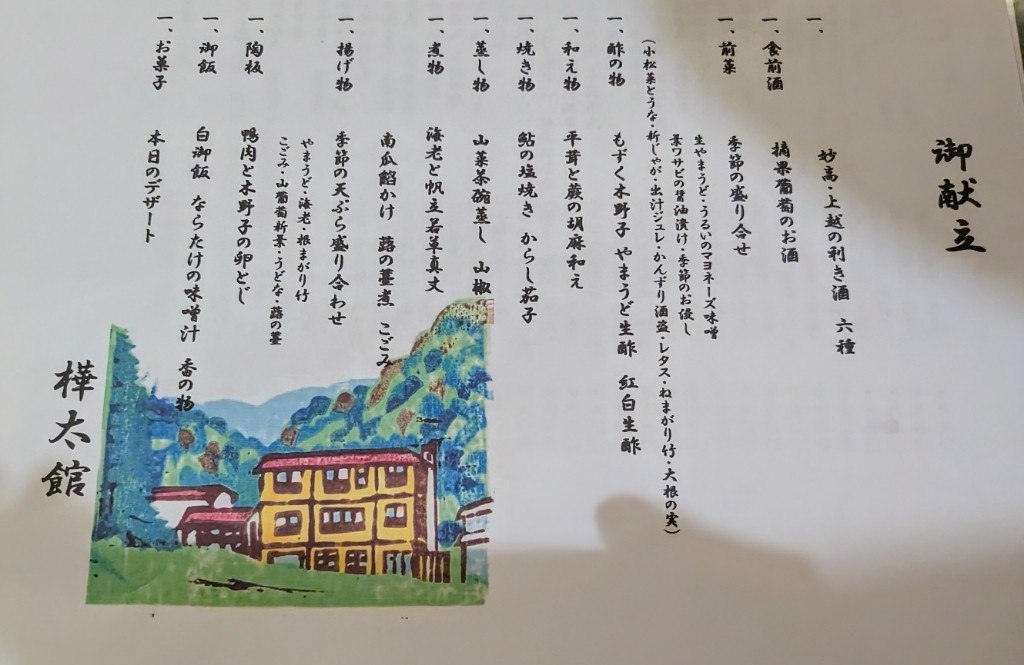 御献立
一、
妙高・上越の利き酒 六種
一、食前酒 摘果葡萄のお酒
一、前菜 季節の盛り合せ
生やまうど・うるいのマヨネーズ味噌
葉ワサビの醤油漬け・季節のお浸し
(小松菜とうな・新じゃが・出汁ジュレ・かんずり酒盗・レタス・ねまがり竹・大根の実)
一、酢の物 もずく木野子 やまうど生酢 紅白生酢
一、和え物 平茸と蕨の胡麻和え
一、焼き物 鮎の塩焼き からし茄子
一、蒸し物 山菜茶碗蒸し 山椒
一、煮物 海老と帆立若草真丈
南瓜餡かけ 蕗の薹煮 こごみ
一、揚げ物 季節の天ぷら盛り合わせ
やまうど・海老・根まがり竹
こごみ・山葡萄新葉・うどな・蕗の薹
一、陶板 鴨肉と木野子の卵とじ
一、御飯 白御飯 ならたけの味噌汁 香の物
一、お菓子 本日のデザート
樺太館